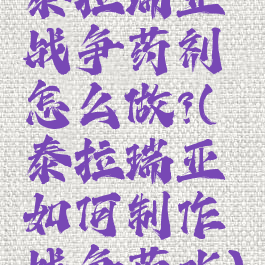 泰拉瑞亚
战争药剂
怎么做?(
泰拉瑞亚
如何制作
战争药水)